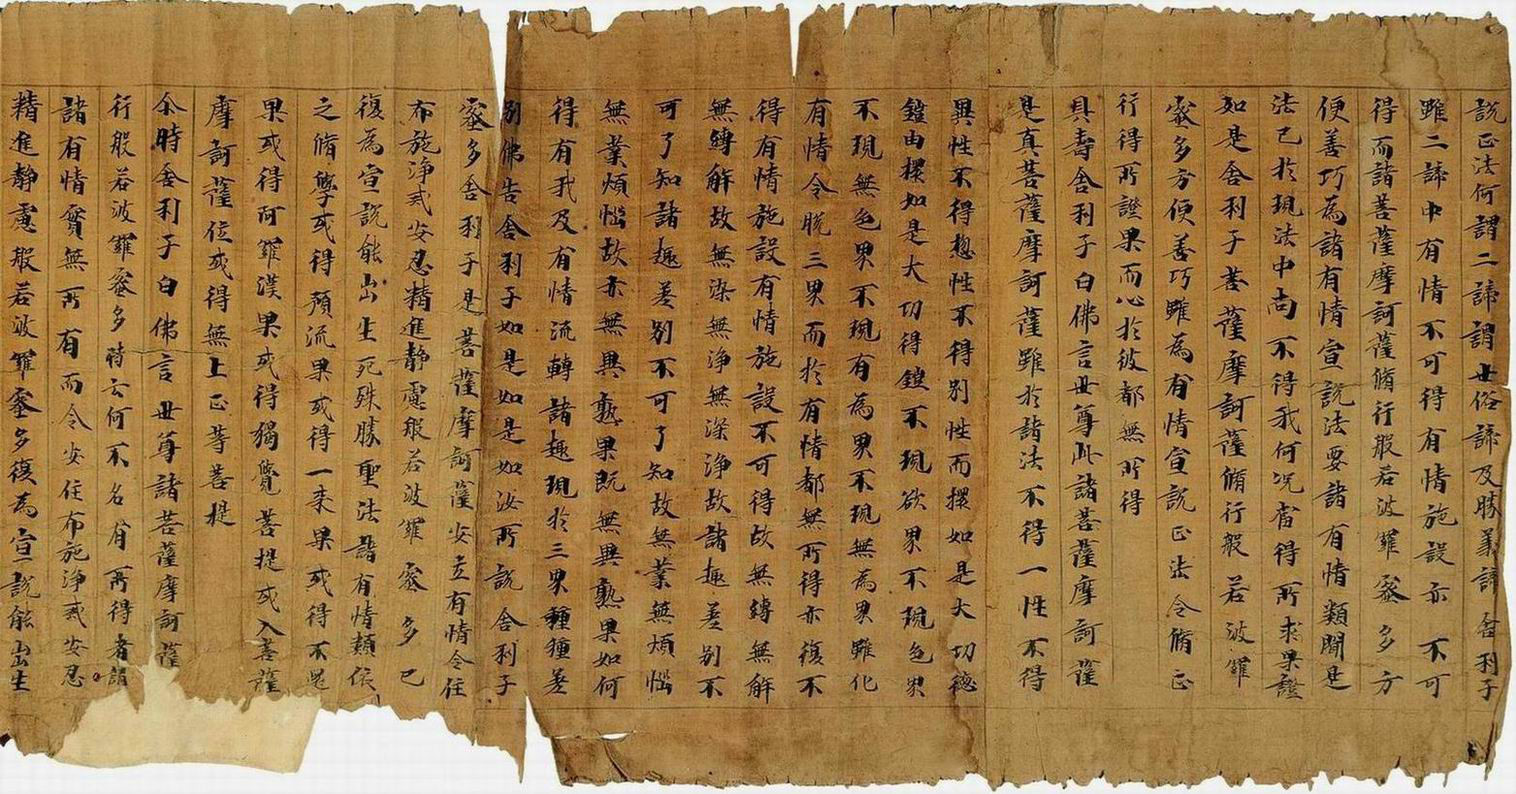 說正法何謂二諦謂世俗諦及勝義諦舍利子
雖二諦中有情不可得有情施設亦不可
得而諸菩薩摩訶薩脩行般若波羅蜜多方
便善巧為諸有情宣說法要諸有情類聞是
法已於現法中尚不得我何況當得所求果證
如是舍利子菩薩摩訶薩脩行般若波羅
蜜多方便善巧雖為有情宣說正法令脩正
行得所證果而心於彼都無所得
具壽舍利子白佛言世尊此諸菩薩摩訶薩
是真菩薩摩訶薩雖於諸法不得一性不得
異性不得惣性不得別性而擐如是大功德
鎧由擐如是大功德鎧不現欲界不現色界
不現無色界不現有為界不現無為界雖化
有情令脫三界而於有情都無所得亦復不
得有情施設有情施設不可得故無縛無解
無縛解故無染無淨無染淨故諸趣差別不
可了知諸趣差別不可了知故無業無煩惱
無業煩惱故亦無異熟果既無異熟果如何
得有我及有情流轉諸趣現於三界種種差
別佛告舍利子如是如是如汝所說舍利子
蜜多舍利子是菩薩摩訶薩安立有情令住
布施淨戒安忍精進靜慮般若波羅蜜多已
復為宣說能出生死殊勝聖法諸有情類依
之脩學或得預流果或得一來果或得不還
果或得阿羅漢果或得獨覺菩提或入菩薩
摩訶薩位或得無上正等菩提
尒時舍利子白佛言世尊諸菩薩摩訶薩
行般若波羅蜜多時云何不名有所得者諸
諸有情實無所有而令安住布施淨戒安忍
精進靜慮般若波羅蜜多復為宣說能出生